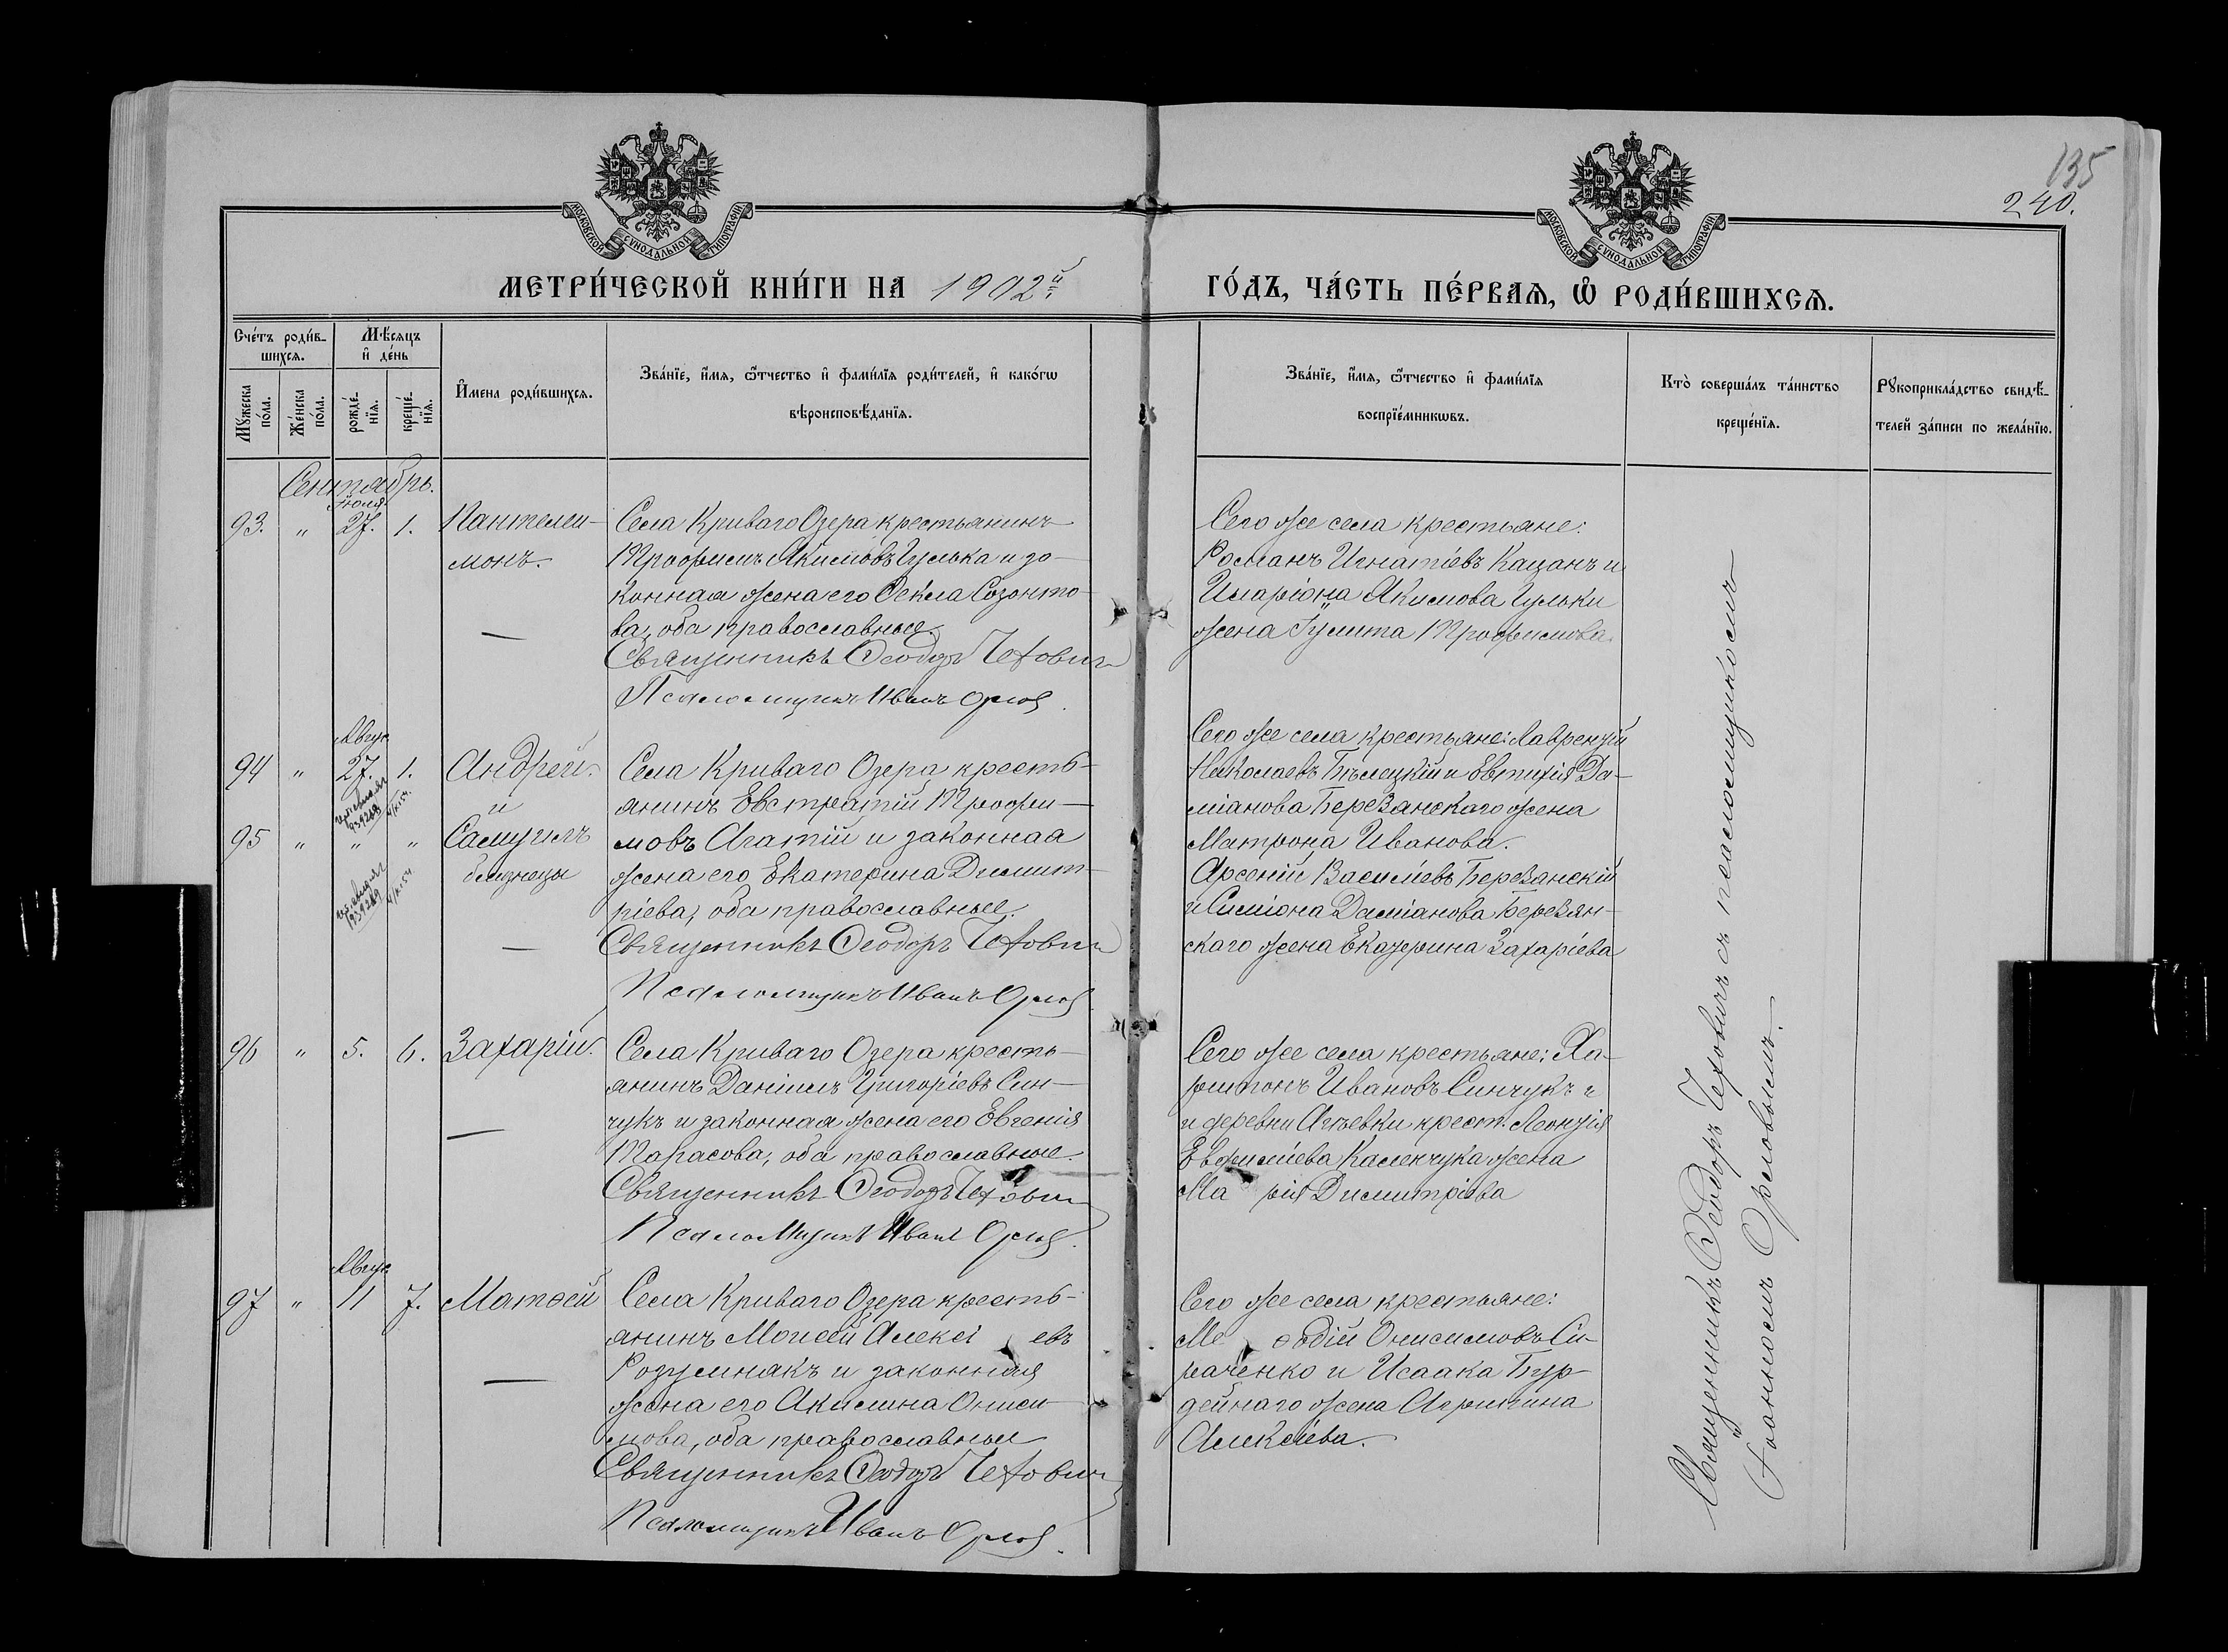 135
240.
МОСКОВСКОЙ СѴНОДАЛЬНОЙ ТИПОГРАФІИ
МОСКОВСКОЙ СѴНОДАЛЬНОЙ ТИПОГРАФІИ
МЕТРИ́ЧЕСКОЙ КНИ́ГИ НА 1902й
ГО́ДЪ, ЧА́СТЬ ПЕ́РВАѦ, Ѽ РОДИ́ВШИХСѦ.
Сче́тъ роди́в-
шихсѧ.
Мѣ́сѧцъ
и҆ де́нь
Мꙋ́жеска по́ла.
Же́нска по́ла.
рожде́-нїѧ.
креще́-нїѧ.
И҆мена роди́вшихсѧ.
Зва́нїе, и҆́мѧ, ѻ҆́тчество и҆ фами́лїѧ роди́телей, и҆ како́гѡ
вѣроисповѣ́данїѧ.
Зва́нїе, и҆́мѧ, ѻ҆́тчество и҆ фами́лїѧ
воспрїе́мникѡвъ.
Кто̀ соверша́лъ та́инство
креще́нїѧ.
Рꙋкоприкла́дство свидѣ́-
телей за́писи по жела́нїю.
Сентябрь.
Іюля
93. " 27. 1. Пантелеи-
монъ.
Села Криваго Озера крестьянинъ
Трофимъ Акимовъ Гулька и за-
конная жена его Ѳекла Созонто-
ва, оба православные.
Священникъ Ѳеодоръ Чехович
Псаломщикъ Иванъ Орлов
Сего же села крестьяне:
Романъ Игнатіевъ Кацанъ и
Иларіона Акимова Гульки
жена Іулита Трофимова.
Авгус.
94 " 27. 1. Андрей.
и
95 " " " Самуилъ
близнецы
Села Криваго Озера кресть-
янинъ Евстратій Трофи-
мовъ Агатій и законная
жена его Екатерина Димит-
ріева, оба православные.
Священникъ Ѳеодоръ Чехович
Псаломщикъ Иванъ Орлов
Сего же села крестьяне: Лаврентій
Николаевъ Бѣлецкій и Евтихія Да-
міанова Березанскаго жена
Матрона Иванова.
Арсеній Василіевъ Березанскій
и Симіона Даміанова Березян-
скаго жена Екатерина Захаріева
96 " 5. 6. Захарій.
Села Криваго Озера кресть-
янинъ Даніилъ Григоріевъ Син-
чукъ и законная жена его Евгенія
Тарасова, оба православные.
Священникъ Ѳеодоръ Чехович
Псаломщикъ Иванъ Орлов
Сего же села крестьяне: Ха-
ритонъ Ивановъ Синчукъ и
и деревни Агѣевки крест. Леонтія
Евфиміева Каленчука жена
Ма рія Димитріева
Авгус.
97 " 11 7. Матѳей
Села Криваго Озера кресть-
янинъ Моисей Алексі евъ
Розумнякъ и законная
жена его Акилина Ониси-
мова, оба православные
Священникъ Ѳеодоръ Чехович
Псаломщикъ Иванъ Орлов.
Сего же села крестьяне:
Ме ѳодій Онисимовъ Си-
раченко и Исаака Бур-
дейнаго жена Агрипина
Алексіева.
Священникъ Ѳеодоръ Чеховичъ съ псаломщикомъ
Іоанномъ Орловымъ.